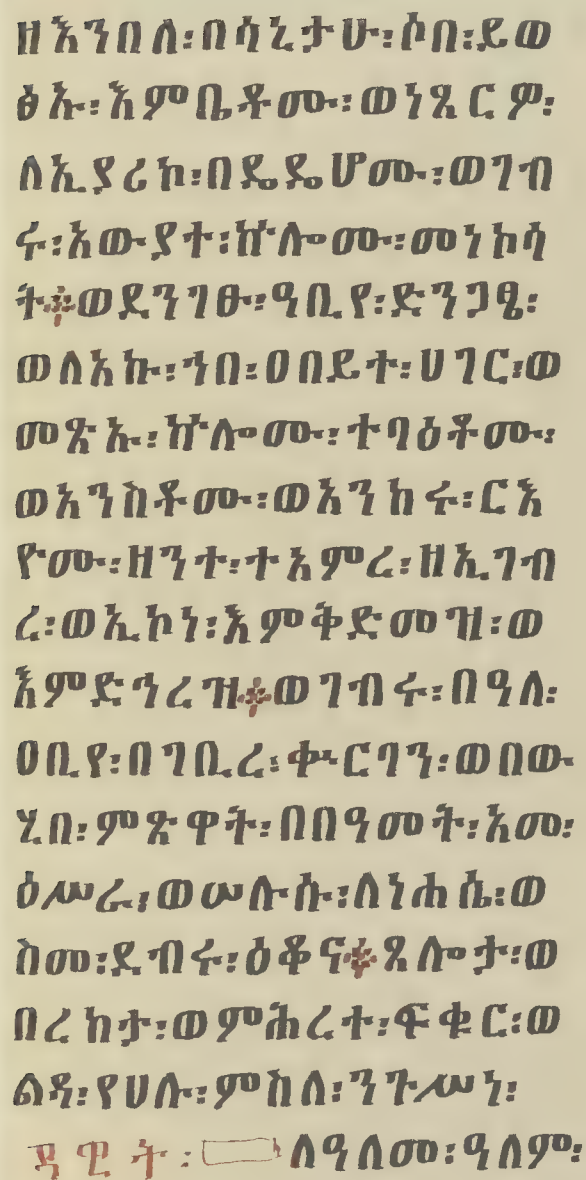 ዘእንበለ፡በሳኒታሁ፡ሶበ፡ይወ
ፅኡ፡እምቤቶሙ፡ወነጺርዎ፡
ለኢያሪኮ፡በዴዴሆሙ፡ወገብ
ሩ፡አውያተ፡ኵሎሙ፡መነኮሳ
ት።ወደንገፁ፡ዓቢየ፡ድንጋፄ፡
ወለአኩ፡ኀበ፡ዐበይተ፡ሀገር፡ወ
መጽኡ፡ኵሎሙ፡ተባዕቶሙ፡
ወአንስቶሙ፡ወአንከሩ፡ርእ
ዮሙ፡ዘንተ፡ተአምረ፡ዘኢገብ
ረ፡ወኢኮነ፡እምቅድመዝ፡ወ
እምድኅረዝ።ወገብሩ፡በዓለ፡
ዐቢየ፡በገቢረ፡ቍርባን፡ወበው
ሂበ፡ምጽዋት፡በበዓመት፡አመ፡
ዕሥራ፡ወሠሉሱ፡ለነሐሴ፡ወ
ስመ፡ደብሩ፡ዕቆና።ጸሎታ፡ወ
በረከታ፡ወምሕረተ፡ፍቁር፡ወ
ልዳ፡የሀሉ፡ምስለ፡ንጉሥነ፡
ዳዊት፡ለዓለመ፡ዓለም፡